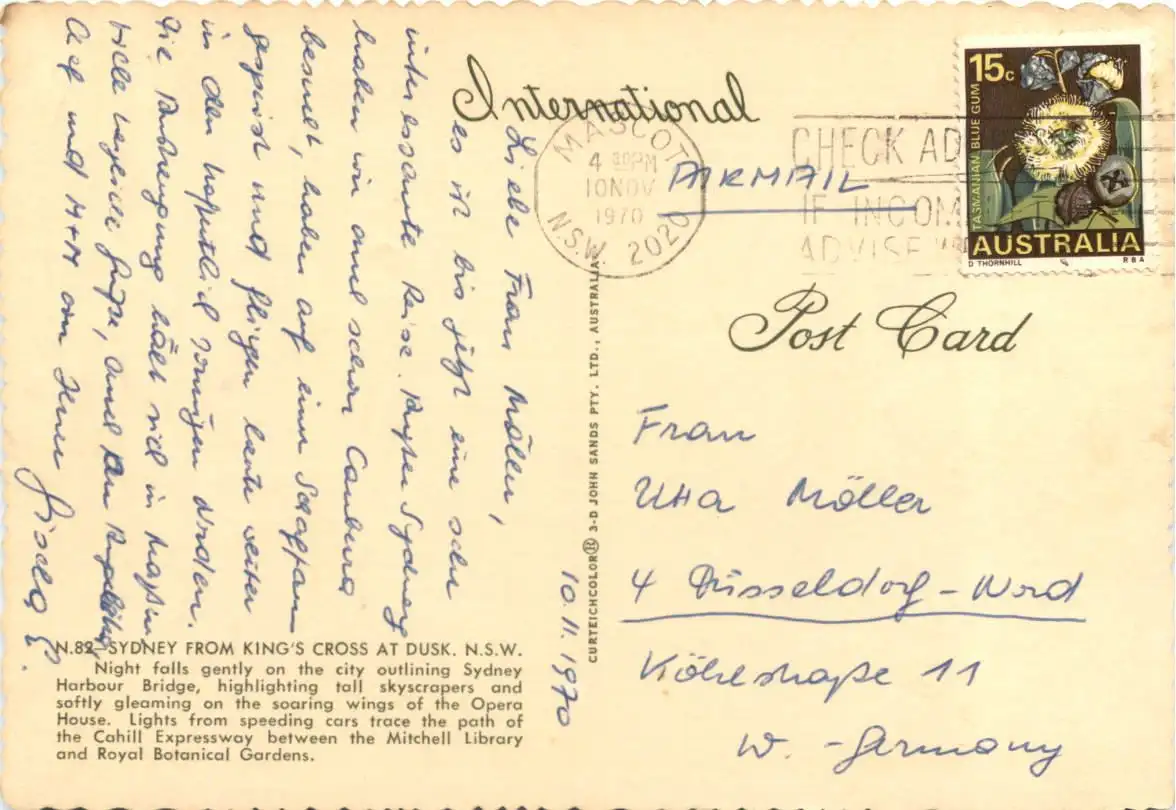 International
MASCOT
4 30PM
10 NOV
1970
N.S.W. 2020
AIRMAIL
CHECK AD
IF INCOM
ADVISE
15c
TASMANIAN BLUE GUM
AUSTRALIA
D THORNHILL
R B A
Post Card
Frau
Utta Möller
4 Düsseldorf - Nord
Köhlstraße 11
W. - Germany
10.11.1970
Liebe Frau Möller,
es ist bis jetzt eine sehr
interessante Reise. Außer Sydney
haben wir auch schon Canberra
besucht, haben auf einer Schaffarm
gespeist und fliegen heute weiter
in den hoffentlich sonnigen Norden.
Die Anstrengung hält sich in Maßen.
Viele herzliche Grüße, auch an
und von Ihrer Gisela
CURTEICHCOLOR® 3-D JOHN SANDS PTY. LTD., AUSTRALIA
N.82—SYDNEY FROM KING'S CROSS AT DUSK. N.S.W.
Night falls gently on the city outlining Sydney
Harbour Bridge, highlighting tall skyscrapers and
softly gleaming on the soaring wings of the Opera
House. Lights from speeding cars trace the path of
the Cahill Expressway between the Mitchell Library
and Royal Botanical Gardens.